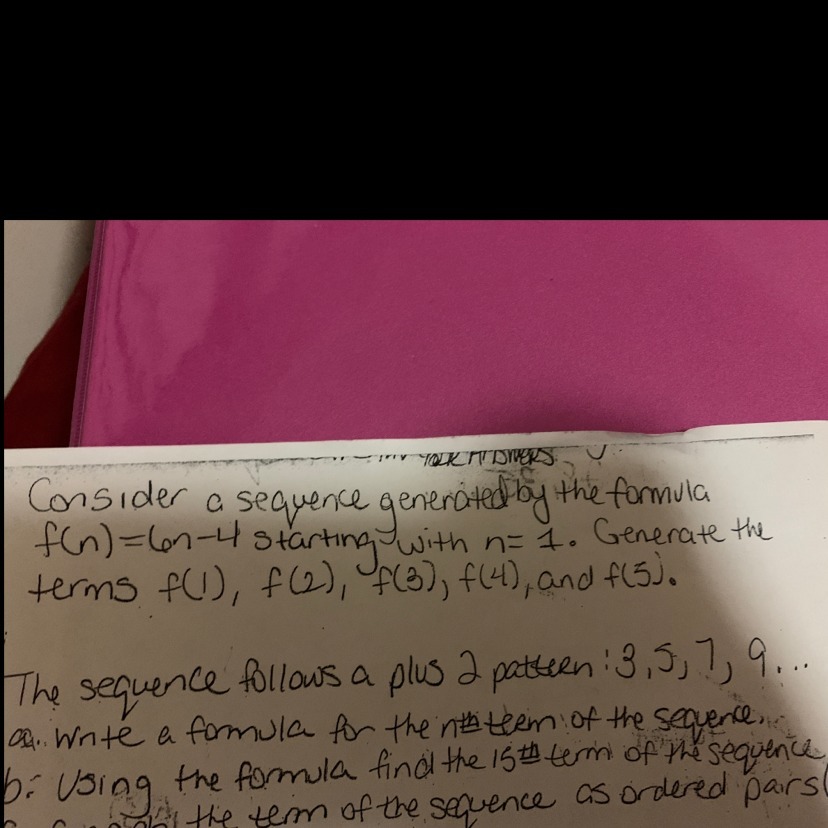 Answers
Consider a sequence generated by the formula
f(n)=6n-4 starting with n= 1. Generate the
terms f(1), f(2), f(3), f(4), and f(5).
The sequence follows a plus 2 pattern: 3, 5, 7, 9...
a. Write a formula for the nth term of the sequence.
b. Using the formula find the 15th term of the sequence
the term of the sequence as ordered pairs (